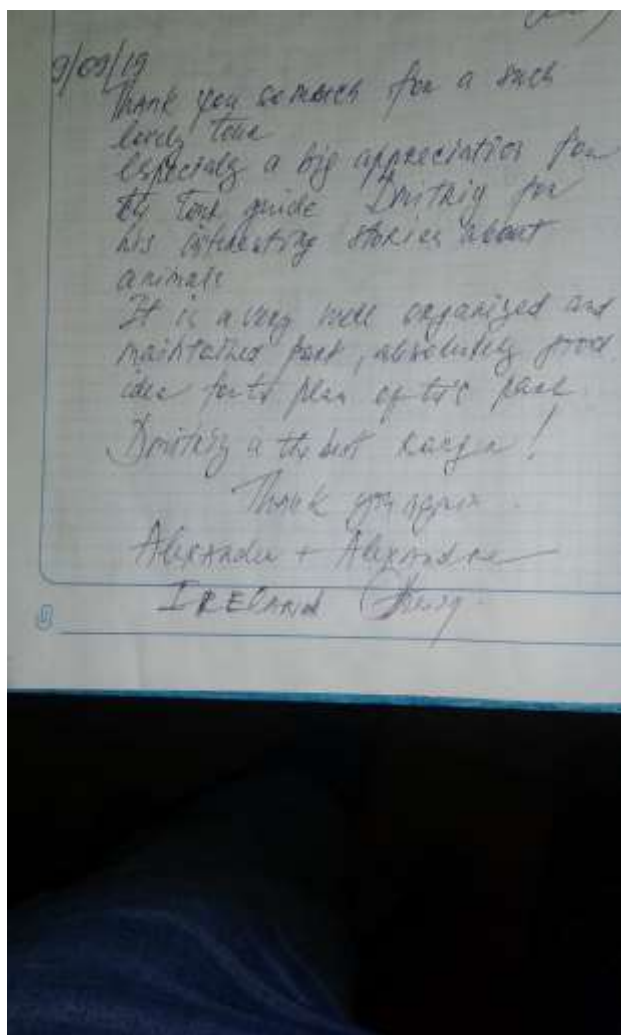 9/09/19
Thank you so much for a such
lovely tour
especialy a big appreciation for
tour guide Dmitriy for
his interesting stories about
animals
It is a very well organized and
maintained park, absolutely good
idea for plan of the park
Dmitriy is the best ranger!
Thank you again.
Alexander + Alexandra
IRELAND